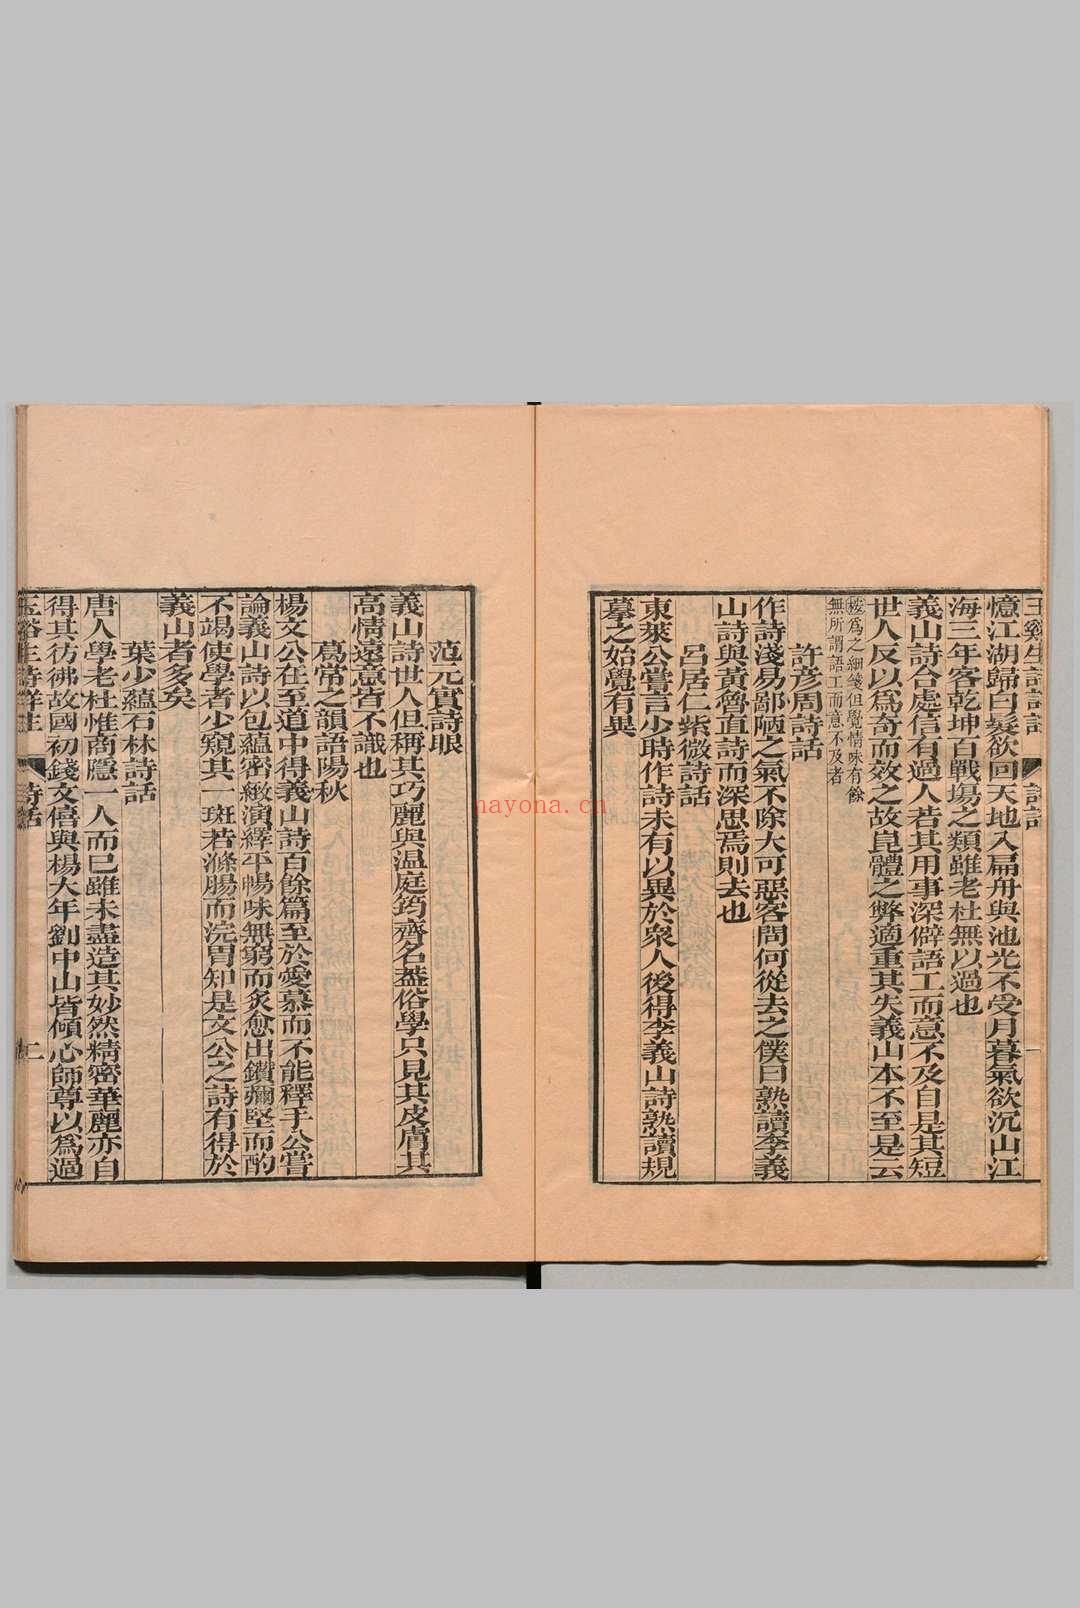 玉谿生詩詳註 詩話 一
憶江湖歸白髮欲回天地入扁舟與池光不受月暮氣欲沉山江
海三年客乾坤百戰塲之類雖老杜無以過也
義山詩合處信有過人若其用事深僻語工而意不及自是其短
世人反以爲奇而效之故崑體之弊適重其失義山本不至是云
桉爲之細箋但覺情味有餘
無所謂語工而意不及者
許彦周詩話
作詩淺易鄙陋之氣不除大可惡客問何從去之僕曰熟讀李義
山詩與黃魯直詩而深思焉則去也
呂居仁紫微詩話
東萊公嘗言少時作詩未有以異於衆人後得李義山詩熟讀規
摹之始覺有異
范元實詩眼
義山詩世人但稱其巧麗與温庭筠齊名葢俗學只見其皮膚其
高情遠意皆不識也
葛常之韻語陽秋
楊文公在至道中得義山詩百餘篇至於愛慕而不能釋手公嘗
論義山詩以包蘊密緻演繹平暢味無窮而炙愈出鑽彌堅而酌
不竭使學者少窺其一斑若滌腸而浣胃知是文公之詩有得於
義山者多矣
葉少蘊石林詩話
唐人學老杜惟商隱一人而已雖未盡造其妙然精密華麗亦自
得其彷彿故國初錢文僖與楊大年劉中山皆傾心師尊以爲過
玉谿生詩詳註 詩話 二
nayona.cn